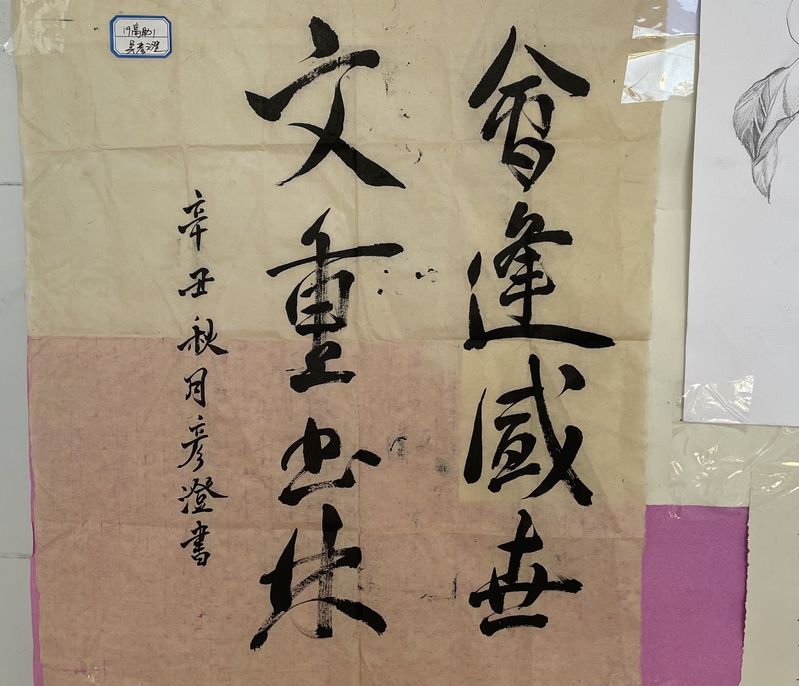 會逢盛世
文重书林
辛丑秋月彦澄書
19高助1
吴彦澄